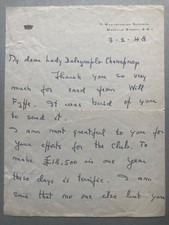 3-2-48
My dear Lady Dalrymple Champneys
Thank you so very
much for card from Will
Fyffe. It was kind of you
to send it.
I am most grateful to you for
your efforts for the Club. To
make £18,500 in one year
these days is terrific. I am
sure that no one else but you